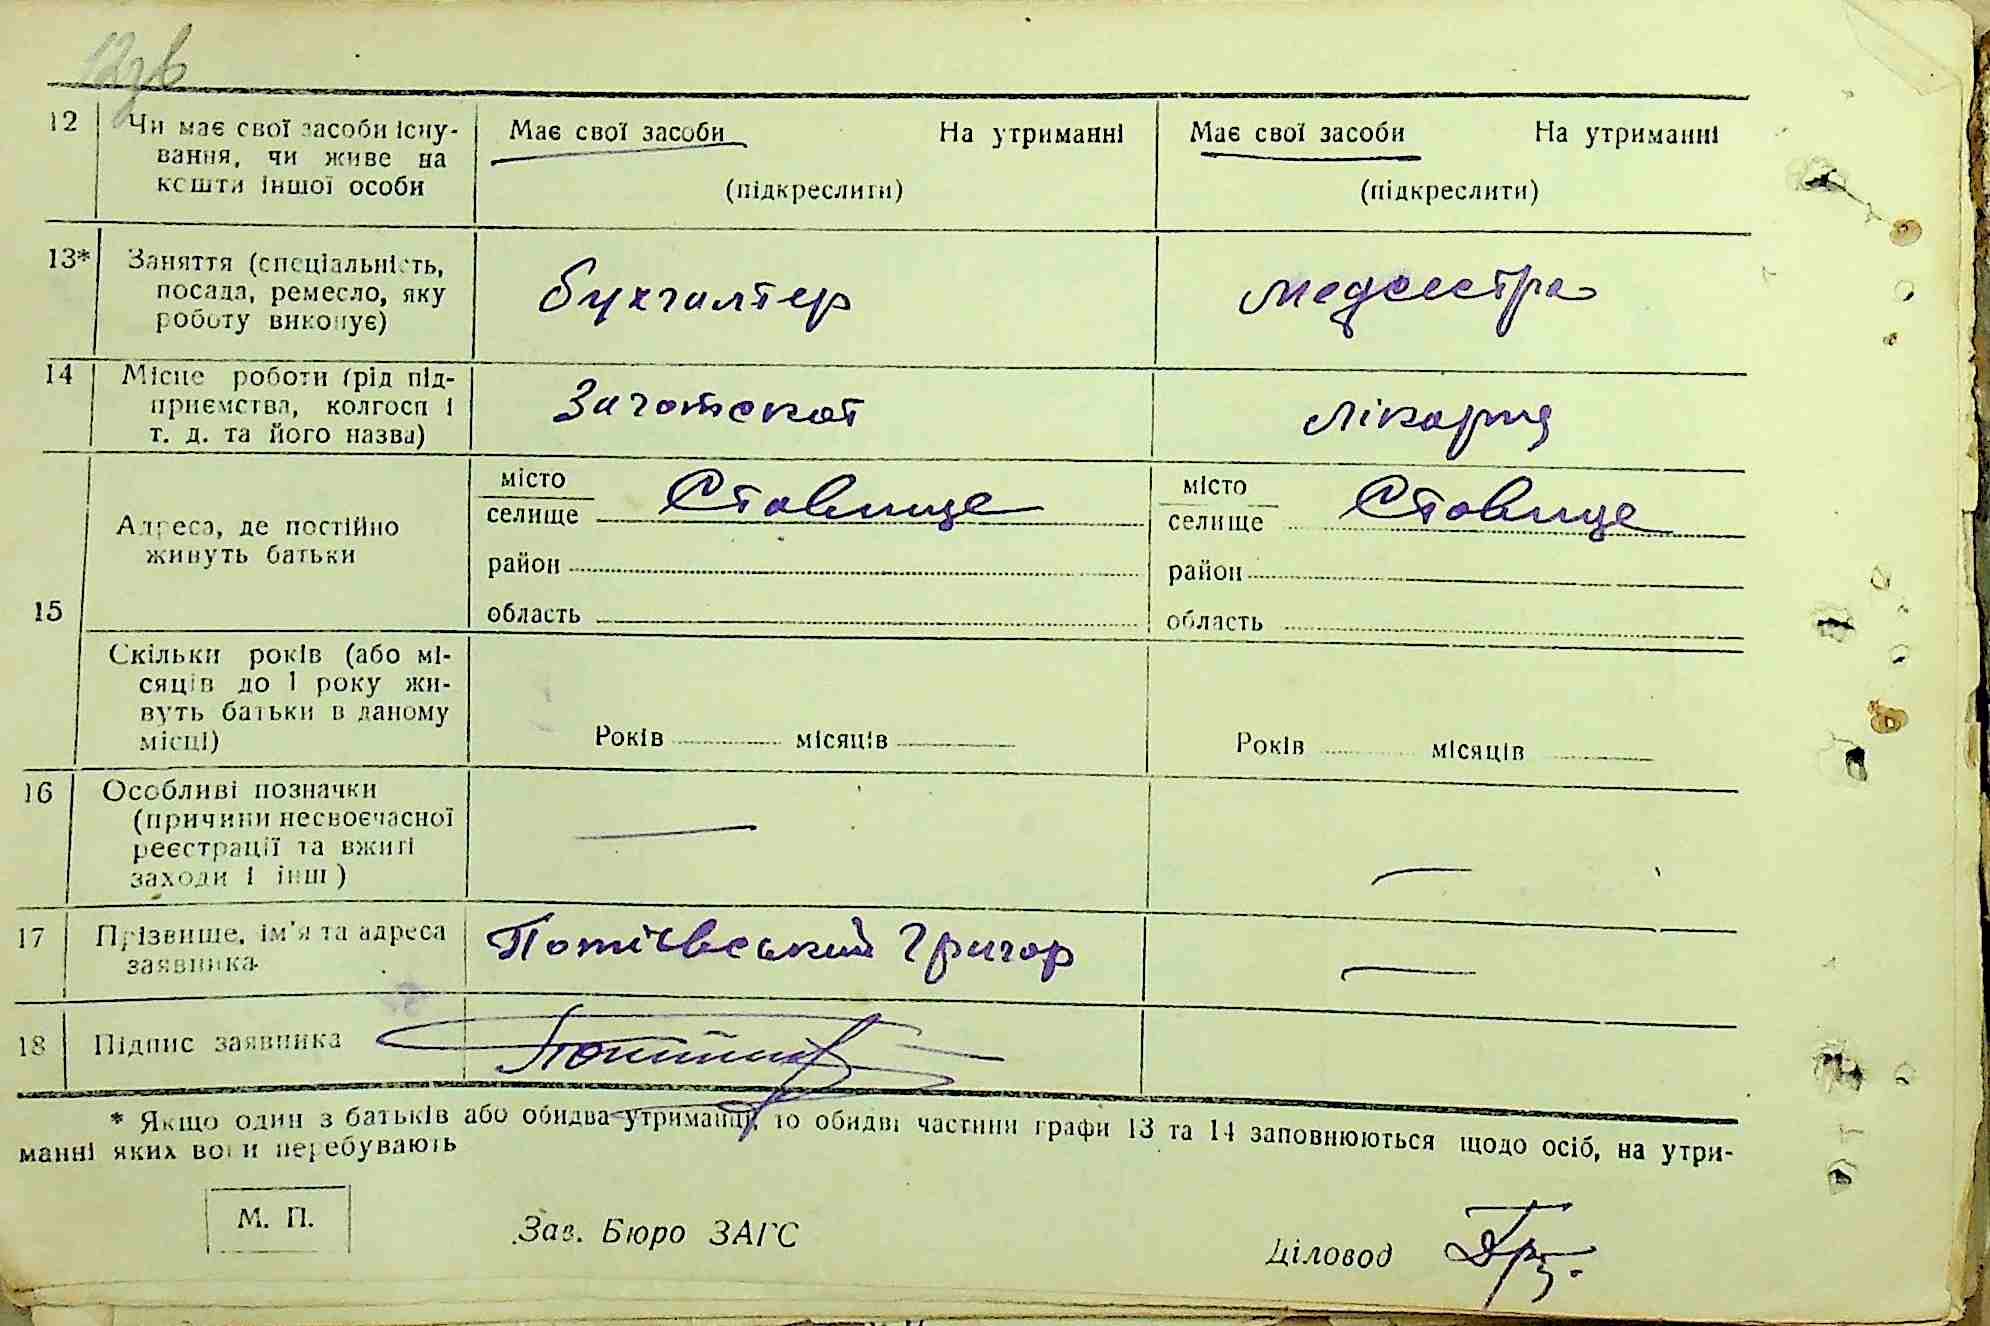 12зв
12 Чи має свої засоби існу- Має свої засоби На утриманні Має свої засоби На утриманні
вання, чи живе на
кошти іншої особи (підкреслити) (підкреслити)
13* Заняття (спеціальність,
посада, ремесло, яку бухгалтер медсестра
роботу виконує)
14 Місце роботи (рід під-
приємства, колгосп і Заготскот лікарня
т. д. та його назва)
місто місто
Адреса, де постійно селище Ставище селище Ставище
живуть батьки район район
15 область область
Скільки років (або мі-
сяців до 1 року жи-
вуть батьки в даному
місці) Років місяців Років місяців
16 Особливі позначки
(причини несвоєчасної
реєстрації та вжиті
заходи і інш)
17 Прізвище, ім'я та адреса Потієвський Григор
заявника
18 Підпис заявника
* Якщо один з батьків або обидва утриманці, то обидві частини графи 13 та 14 заповнюються щодо осіб, на утри-
манні яких вони перебувають
М. П. Зав. Бюро ЗАГС Діловод